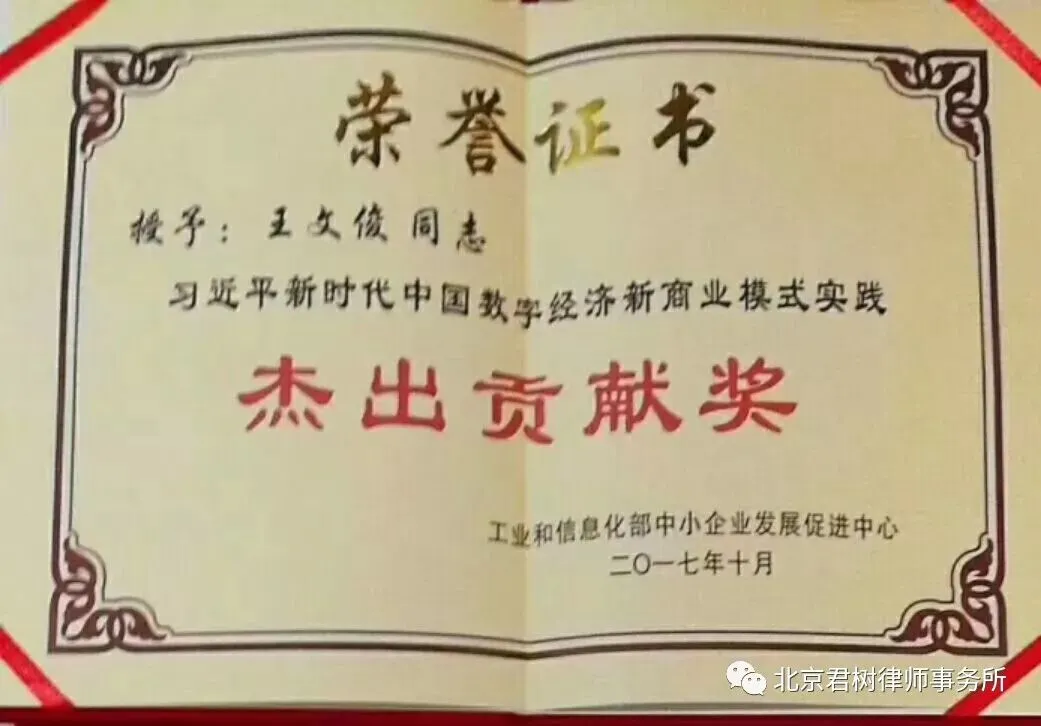 荣誉证书
授予：王文俊同志
习近平新时代中国数字经济新商业模式实践
杰出贡献奖
工业和信息化部中小企业发展促进中心
二〇一七年十月
北京君树律师事务所